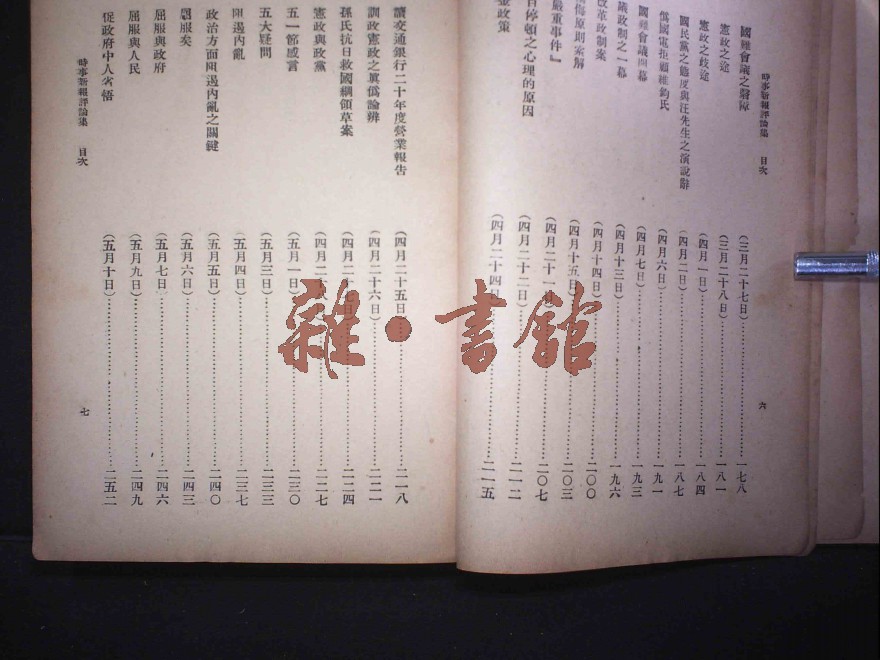 時事新報評論集　目次
國難會議之醫陳（三月二十七日）……一七八
憲政之途（三月二十八日）……一八一
憲政之歧途（四月一日）……一八四
國民黨之態度與汪先生之演說辭（四月二日）……一八七
僞國電拒顧維鈞氏（四月六日）……一九一
國難會議開幕（四月七日）……一九三
議政制之一幕（四月十三日）……一九六
改革政制案（四月十四日）……二〇〇
原則案解（四月十五日）……二〇三
嚴重事件』（四月二十一日）……二〇七
自停頓之心理的原因（四月二十二日）……二一二
鹽政策（四月二十四日）……二一五
六
時事新報評論集　目次
讀交通銀行二十年度營業報告（四月二十五日）……二一八
訓政憲政之眞僞論辨（四月二十六日）……二二一
孫氏抗日救國綱領草案（四月二十日）……二二四
憲政與政黨（四月二日）……二二七
五一節感言（五月一日）……二三〇
五大疑問（五月三日）……二三三
阻遏內亂（五月四日）……二三七
政治方面阻遏內亂之關鍵（五月五日）……二四〇
題服矣（五月六日）……二四三
屈服與政府（五月七日）……二四六
屈服與人民（五月九日）……二四九
促政府中人省悟（五月十日）……二五二
七
雜·書館